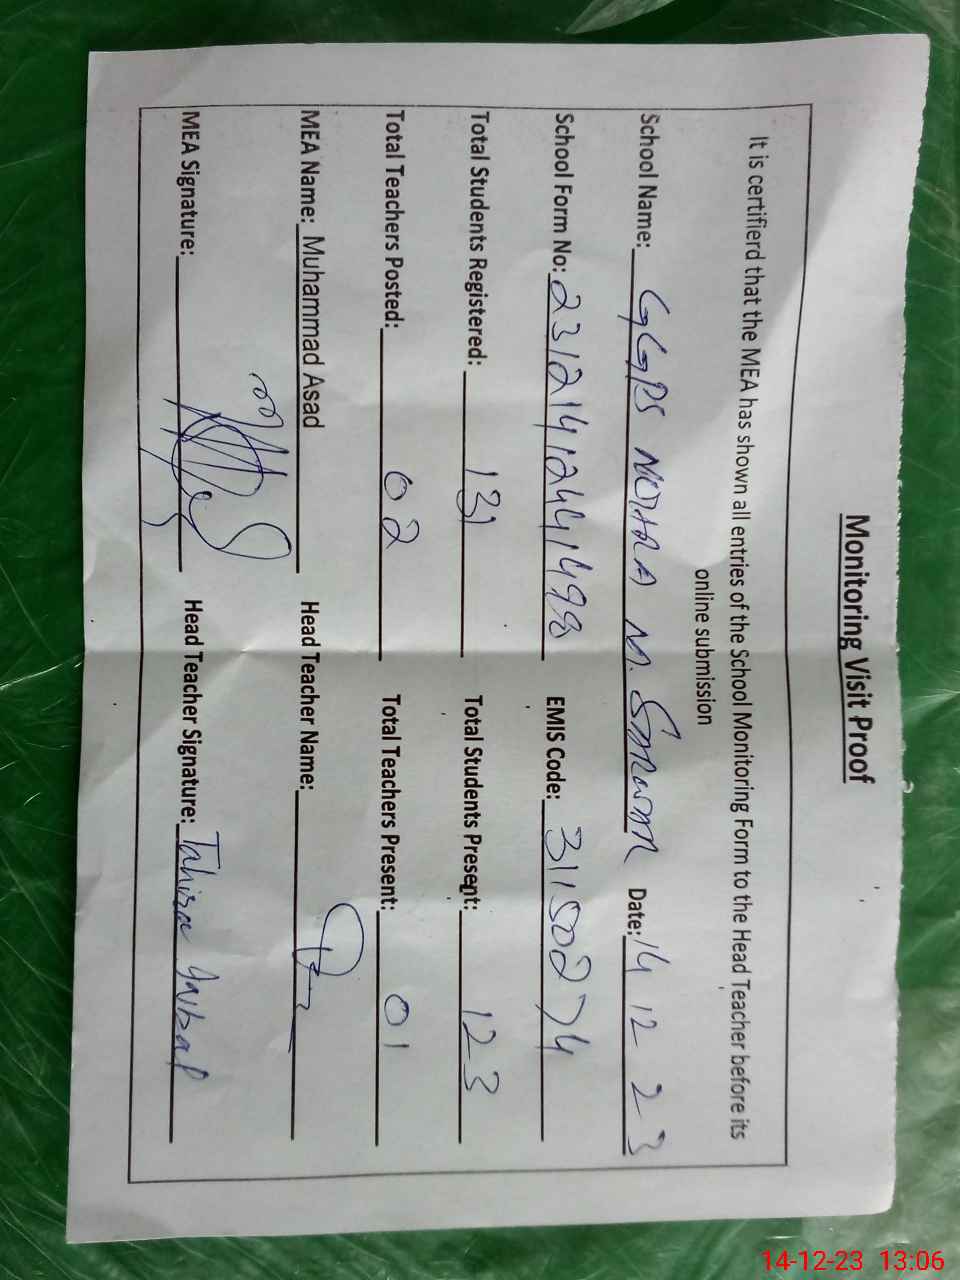 Monitoring Visit Proof
It is certifierd that the MEA has shown all entries of the School Monitoring Form to the Head Teacher before its
online submission
School Name: GGPS M. Sarwar Date: 14 12 23
School Form No: 23121412441498 EMIS Code: 31150274
Total Students Registered: 131 Total Students Present: 123
Total Teachers Posted: 02 Total Teachers Present: 01
MEA Name: Muhammad Asad Head Teacher Name:
MEA Signature: Head Teacher Signature: Tahira
14-12-23 13:06